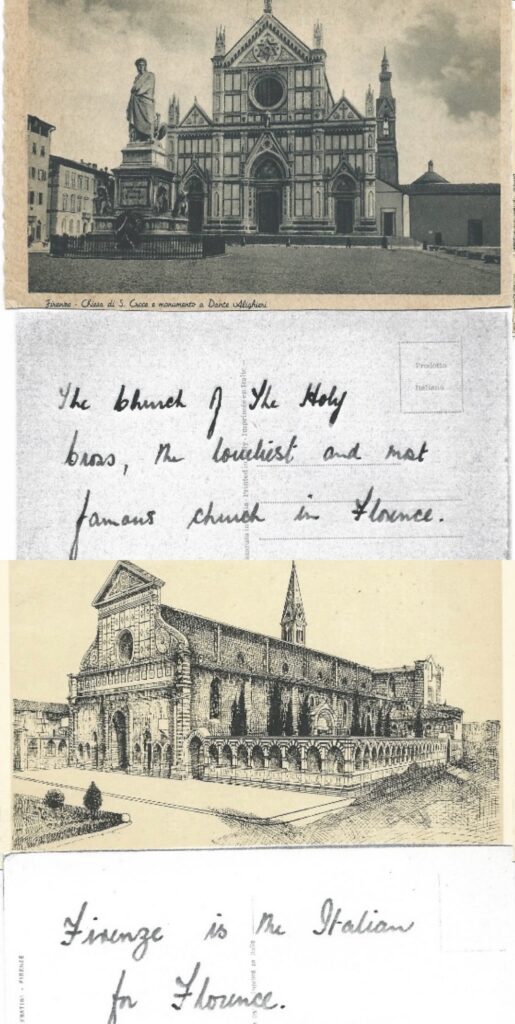 Firenze - Chiesa di S. Croce e monumento a Dante Alighieri
Prodotto
Italiano
The Church of The Holy
Cross, the loveliest and most
famous church in Florence.
Firenze is the Italian
for Florence.
- FIRENZE